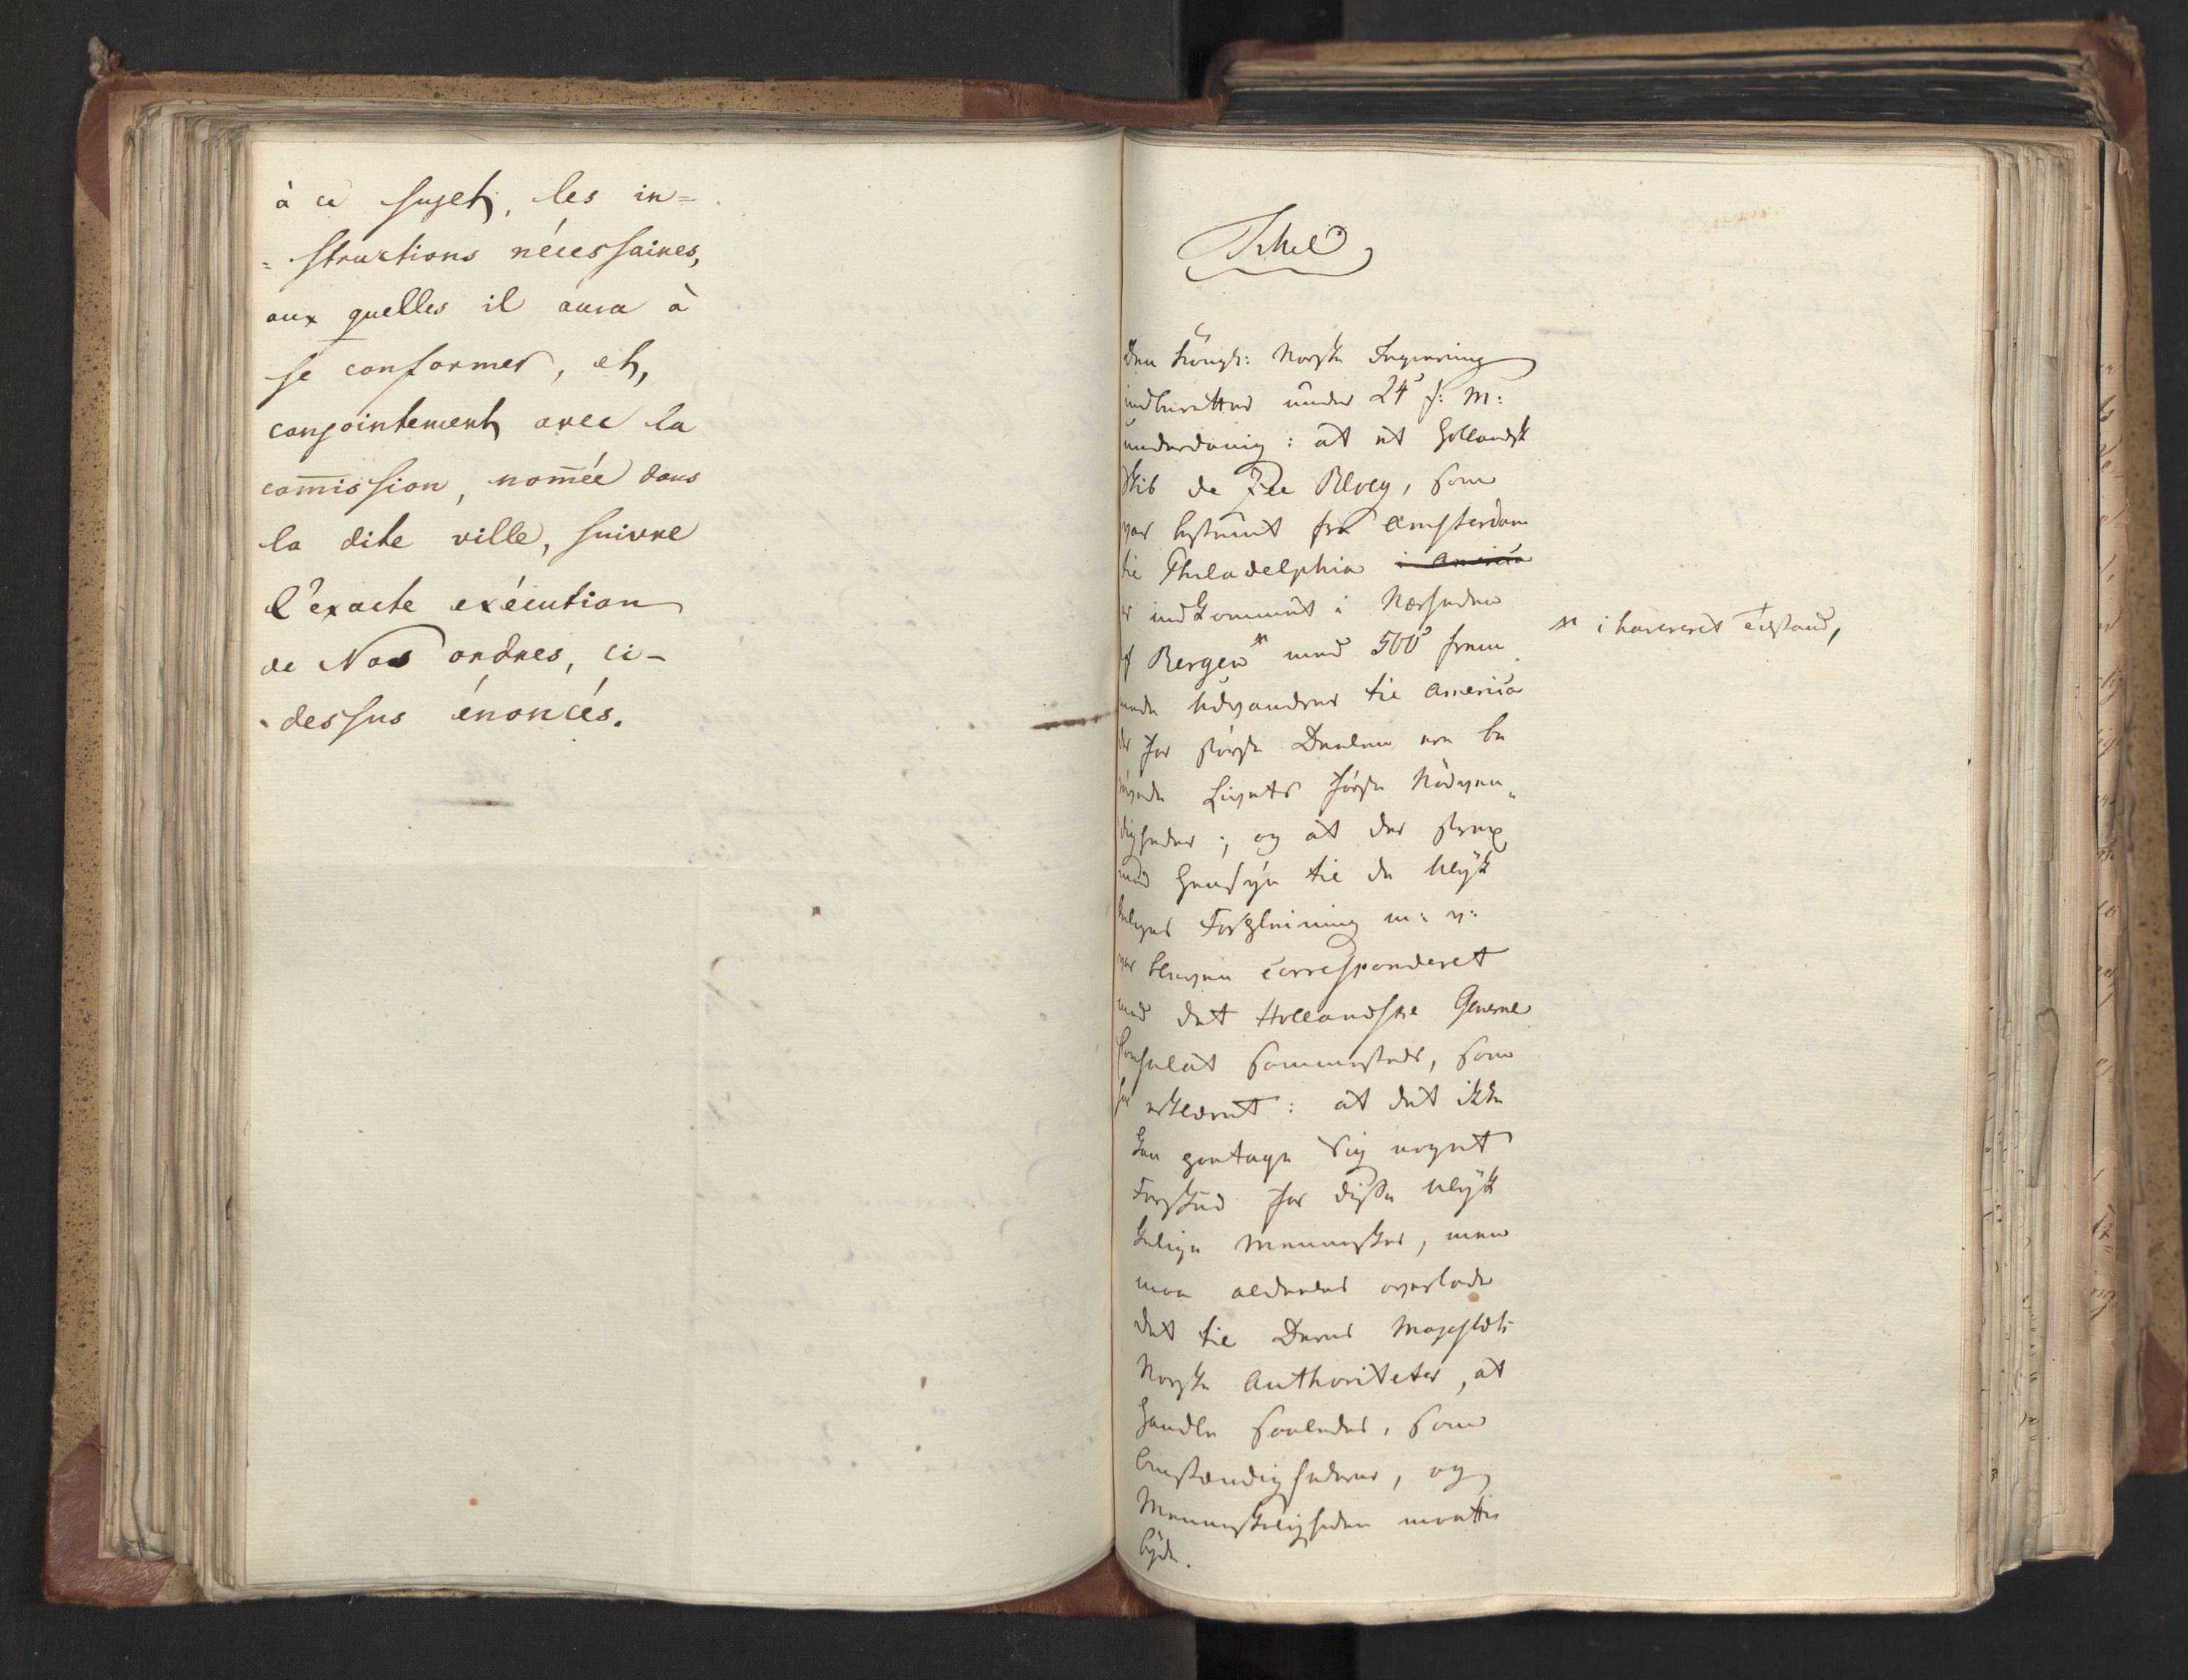 à ce sujet, les in=
=structions nécessaires,
aux quelles il aura à
se conformer, et,
conjointement avec la
com̄ission, nom̄ée dans
la dite ville, suivre
l'exacte exécution
de Nos ordres, ci-
dessus énoncés.
Den Kongl: Norske Regiering
indberetter under 24 f: M:
underdanig: at et Hollandsk
Skib de Zee Ploeg, som
var bestemt fra Amsterdam
til Philadelphia i America
er indkommet i Nærheden
af Bergen med 500 frem
i havereret Tilstand,
mede Udvandrere til America
der for største Deelen ere be
røvede Livets første Nødven„
digheder; og at der strax
med Hensyn til de Ulyk
keliges Forpleining m: v:
var bleven correspondered
med det Hollandske General
Consulat sammesteds, som
har erklæret: at det ikke
kan paatage sig noget
Forskud for disse Ulyk
kelige Mennesker, men
maa aldeeles overlade
det til Deres Majestæts
Norske Authoriteter, at
handle saaledes, som
Omstændighederne, og
Menneskeligheden maatte
byde.